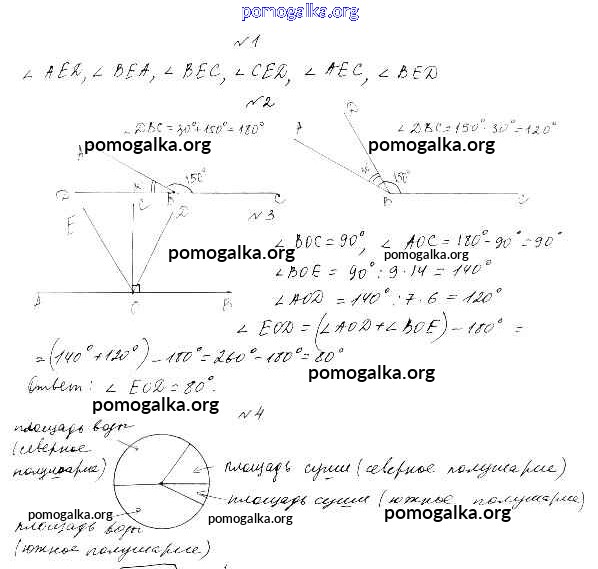 pomogalka.org
№1
∠ AED, ∠ BEA, ∠ BEC, ∠ CED, ∠ AEC, ∠ BED
№2
∠DBC = 30°+150° = 180°
∠DBC = 150°-30° = 120°
A
D
A
pomogalka.org
pomogalka.org
150°
150°
D B C
B C
№3
E C D
A O B
pomogalka.org
∠ BOC = 90°, ∠ AOC = 180°-90° = 90°
pomogalka.org
∠ BOE = 90° : 9 · 14 = 140°
∠ AOD = 140° : 7 · 6 = 120°
∠ EOD = (∠AOD + ∠BOE) - 180° =
= (140° + 120°) - 180° = 260° - 180° = 80°
pomogalka.org
Ответ: ∠ EOD = 80°.
pomogalka.org
№4
площадь воды
(северное
полушарие)
площадь суши (северное полушарие)
площадь суши (южное полушарие)
pomogalka.org
pomogalka.org
pomogalka.org
площадь воды
(южное полушарие)